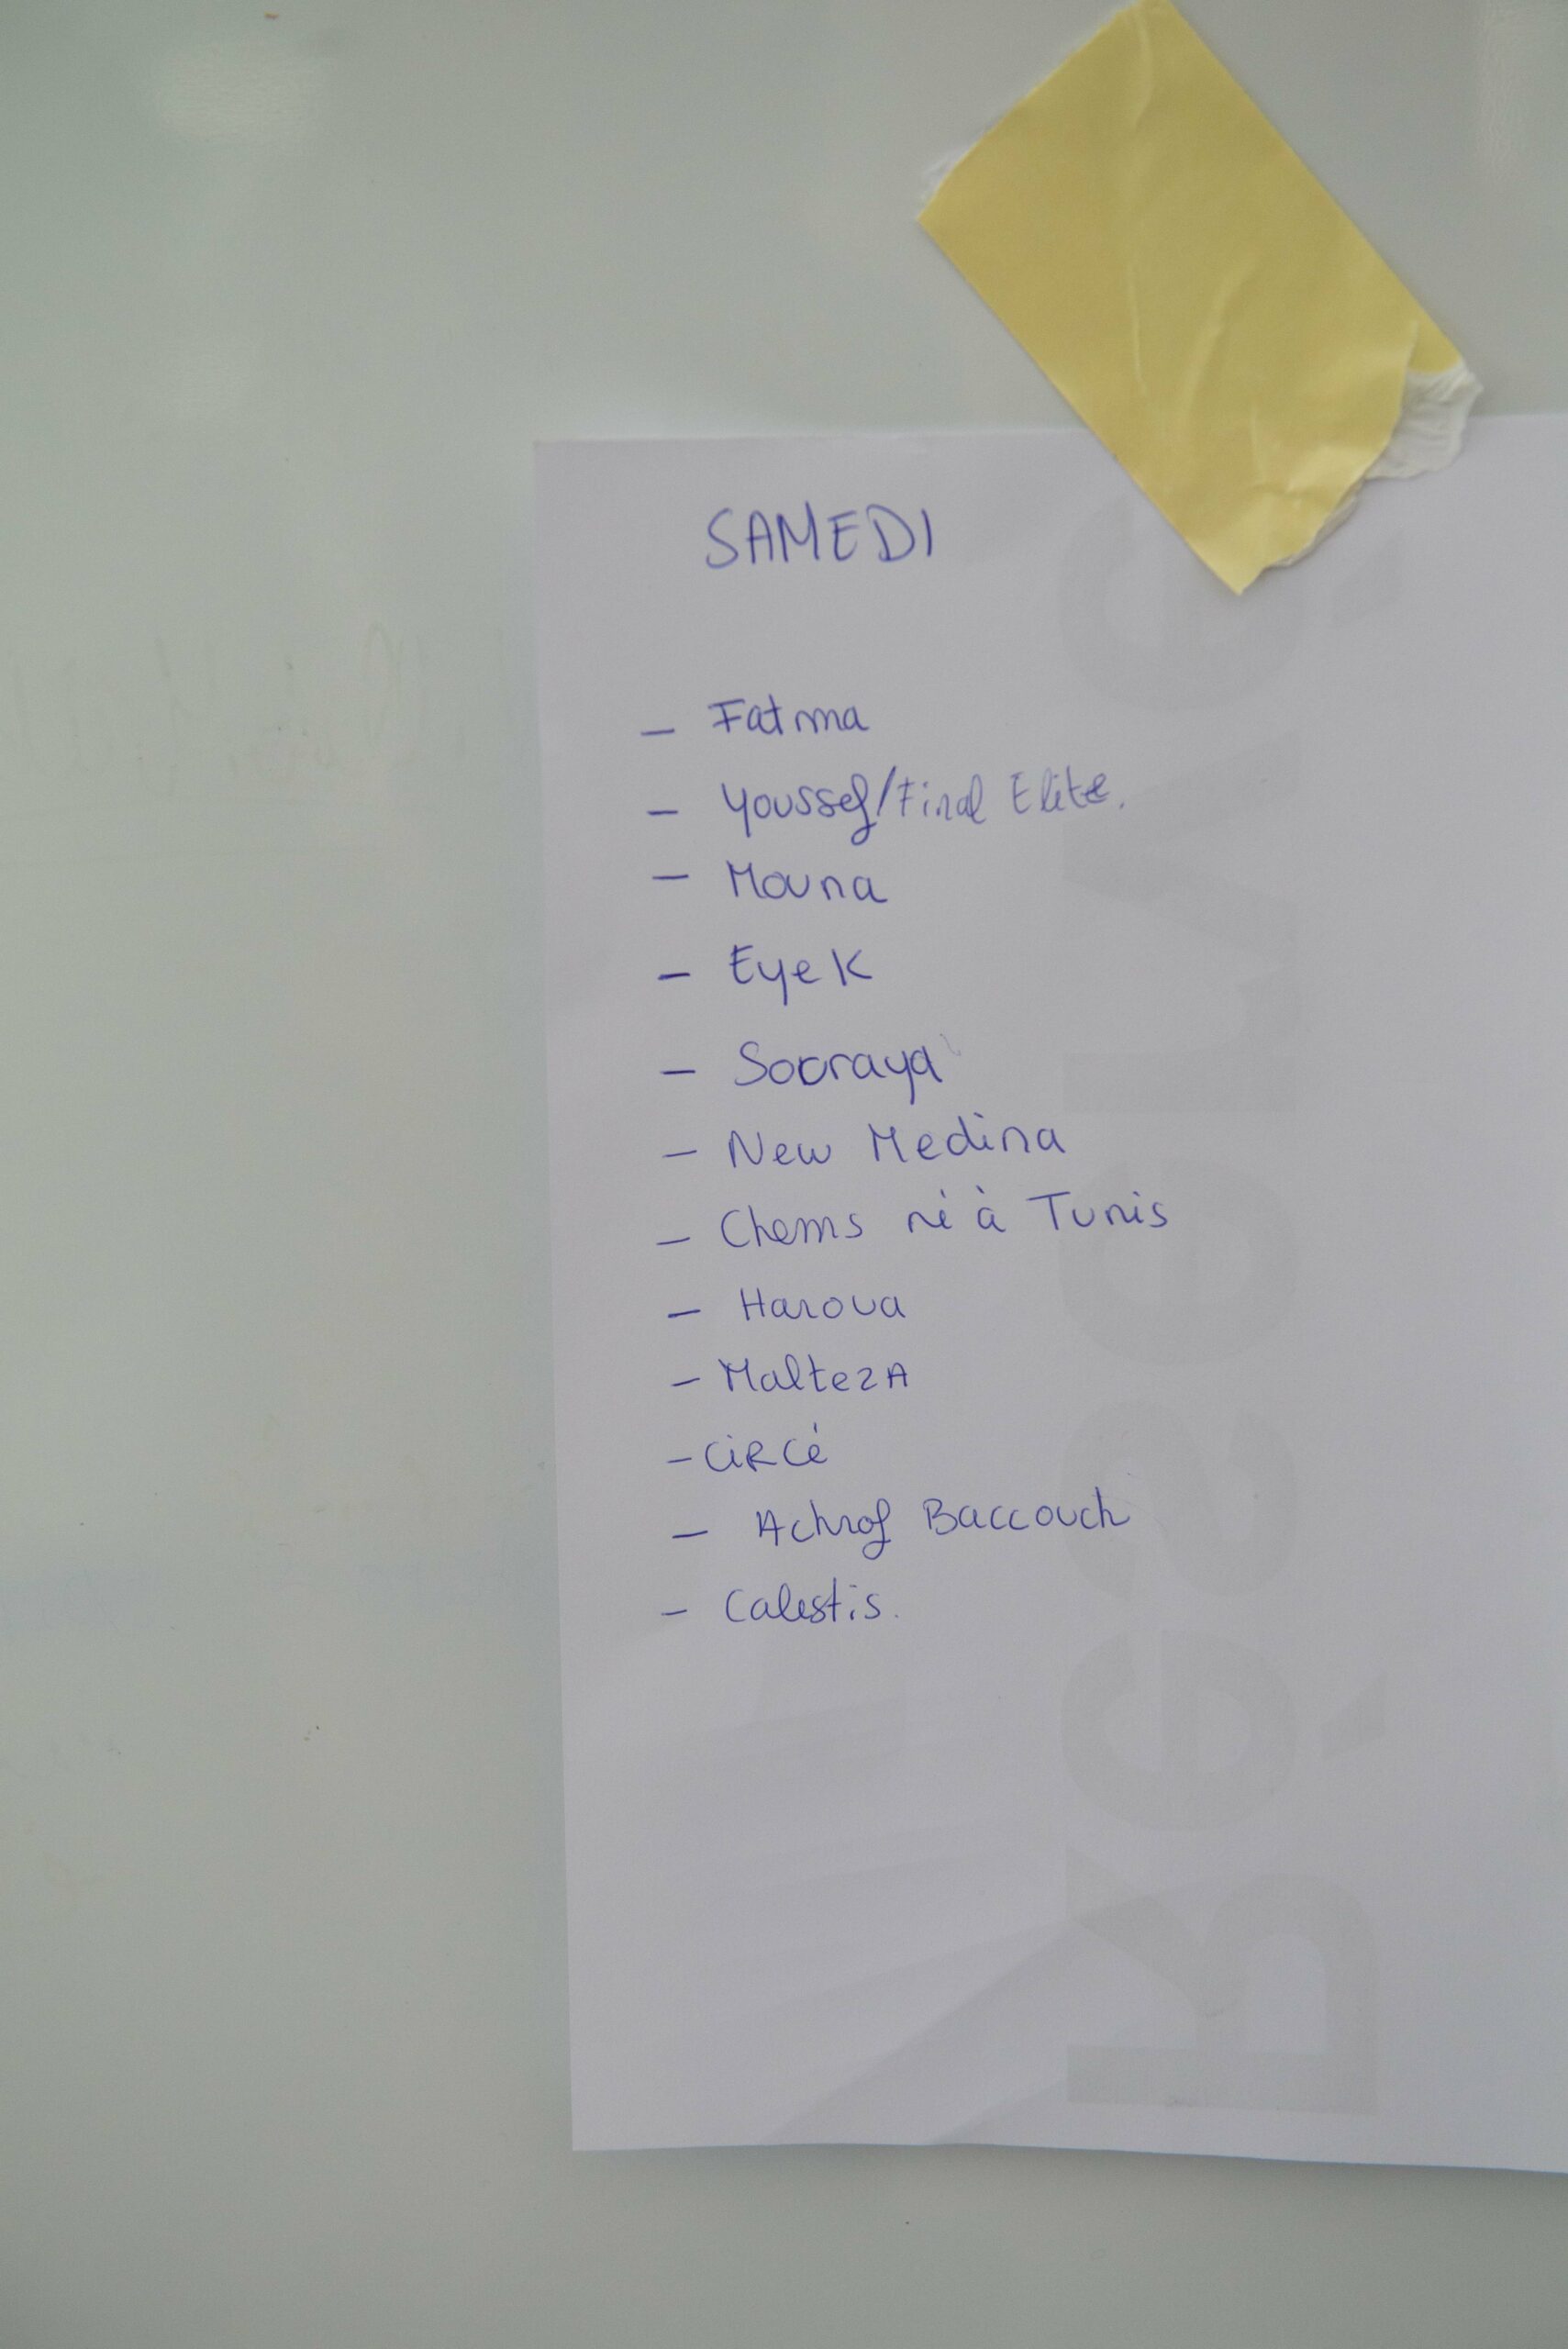 SAMEDI
- Fatma
- Youssef/Final Elite.
- Mouna
- Eye K
- Sooraya
- New Medina
- Chems né à Tunis
- Haroua
- MaltezA
- CiRCé
- Achraf Baccouch
- Calestis.